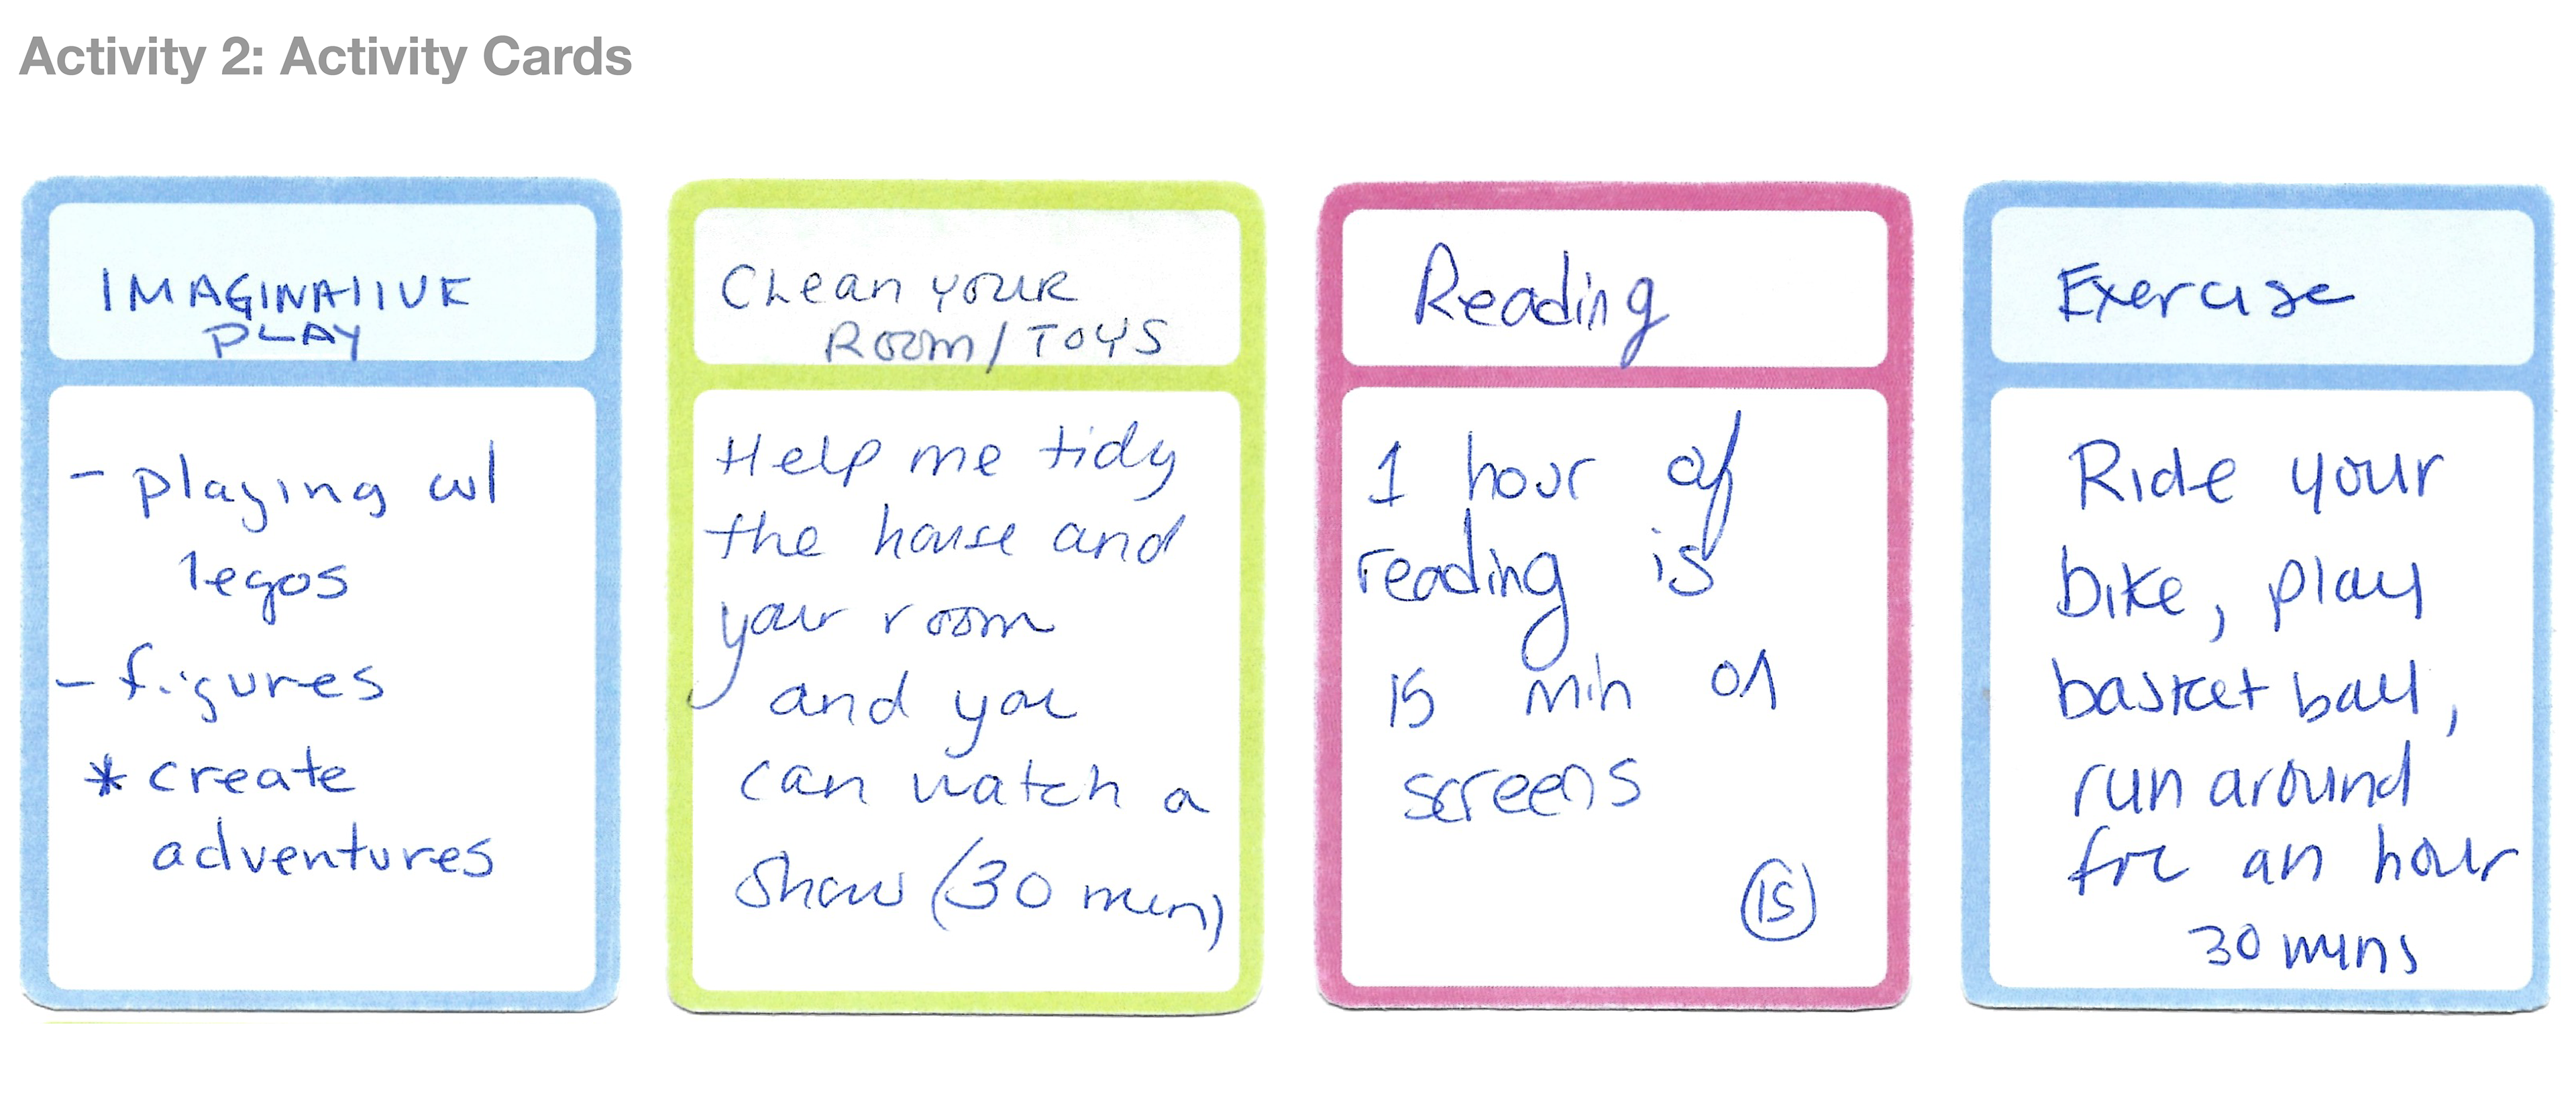 Activity 2: Activity Cards
IMAGINATIVE
PLAY
- playing w/
legos
- figures
* create
adventures
Clean your
Room/Toys
Help me tidy
the house and
your room
and you
can watch a
show (30 min)
Reading
1 hour of
reading is
15 min on
screens
15
Exercise
Ride your
bike, play
basket ball,
run around
for an hour
30 mins